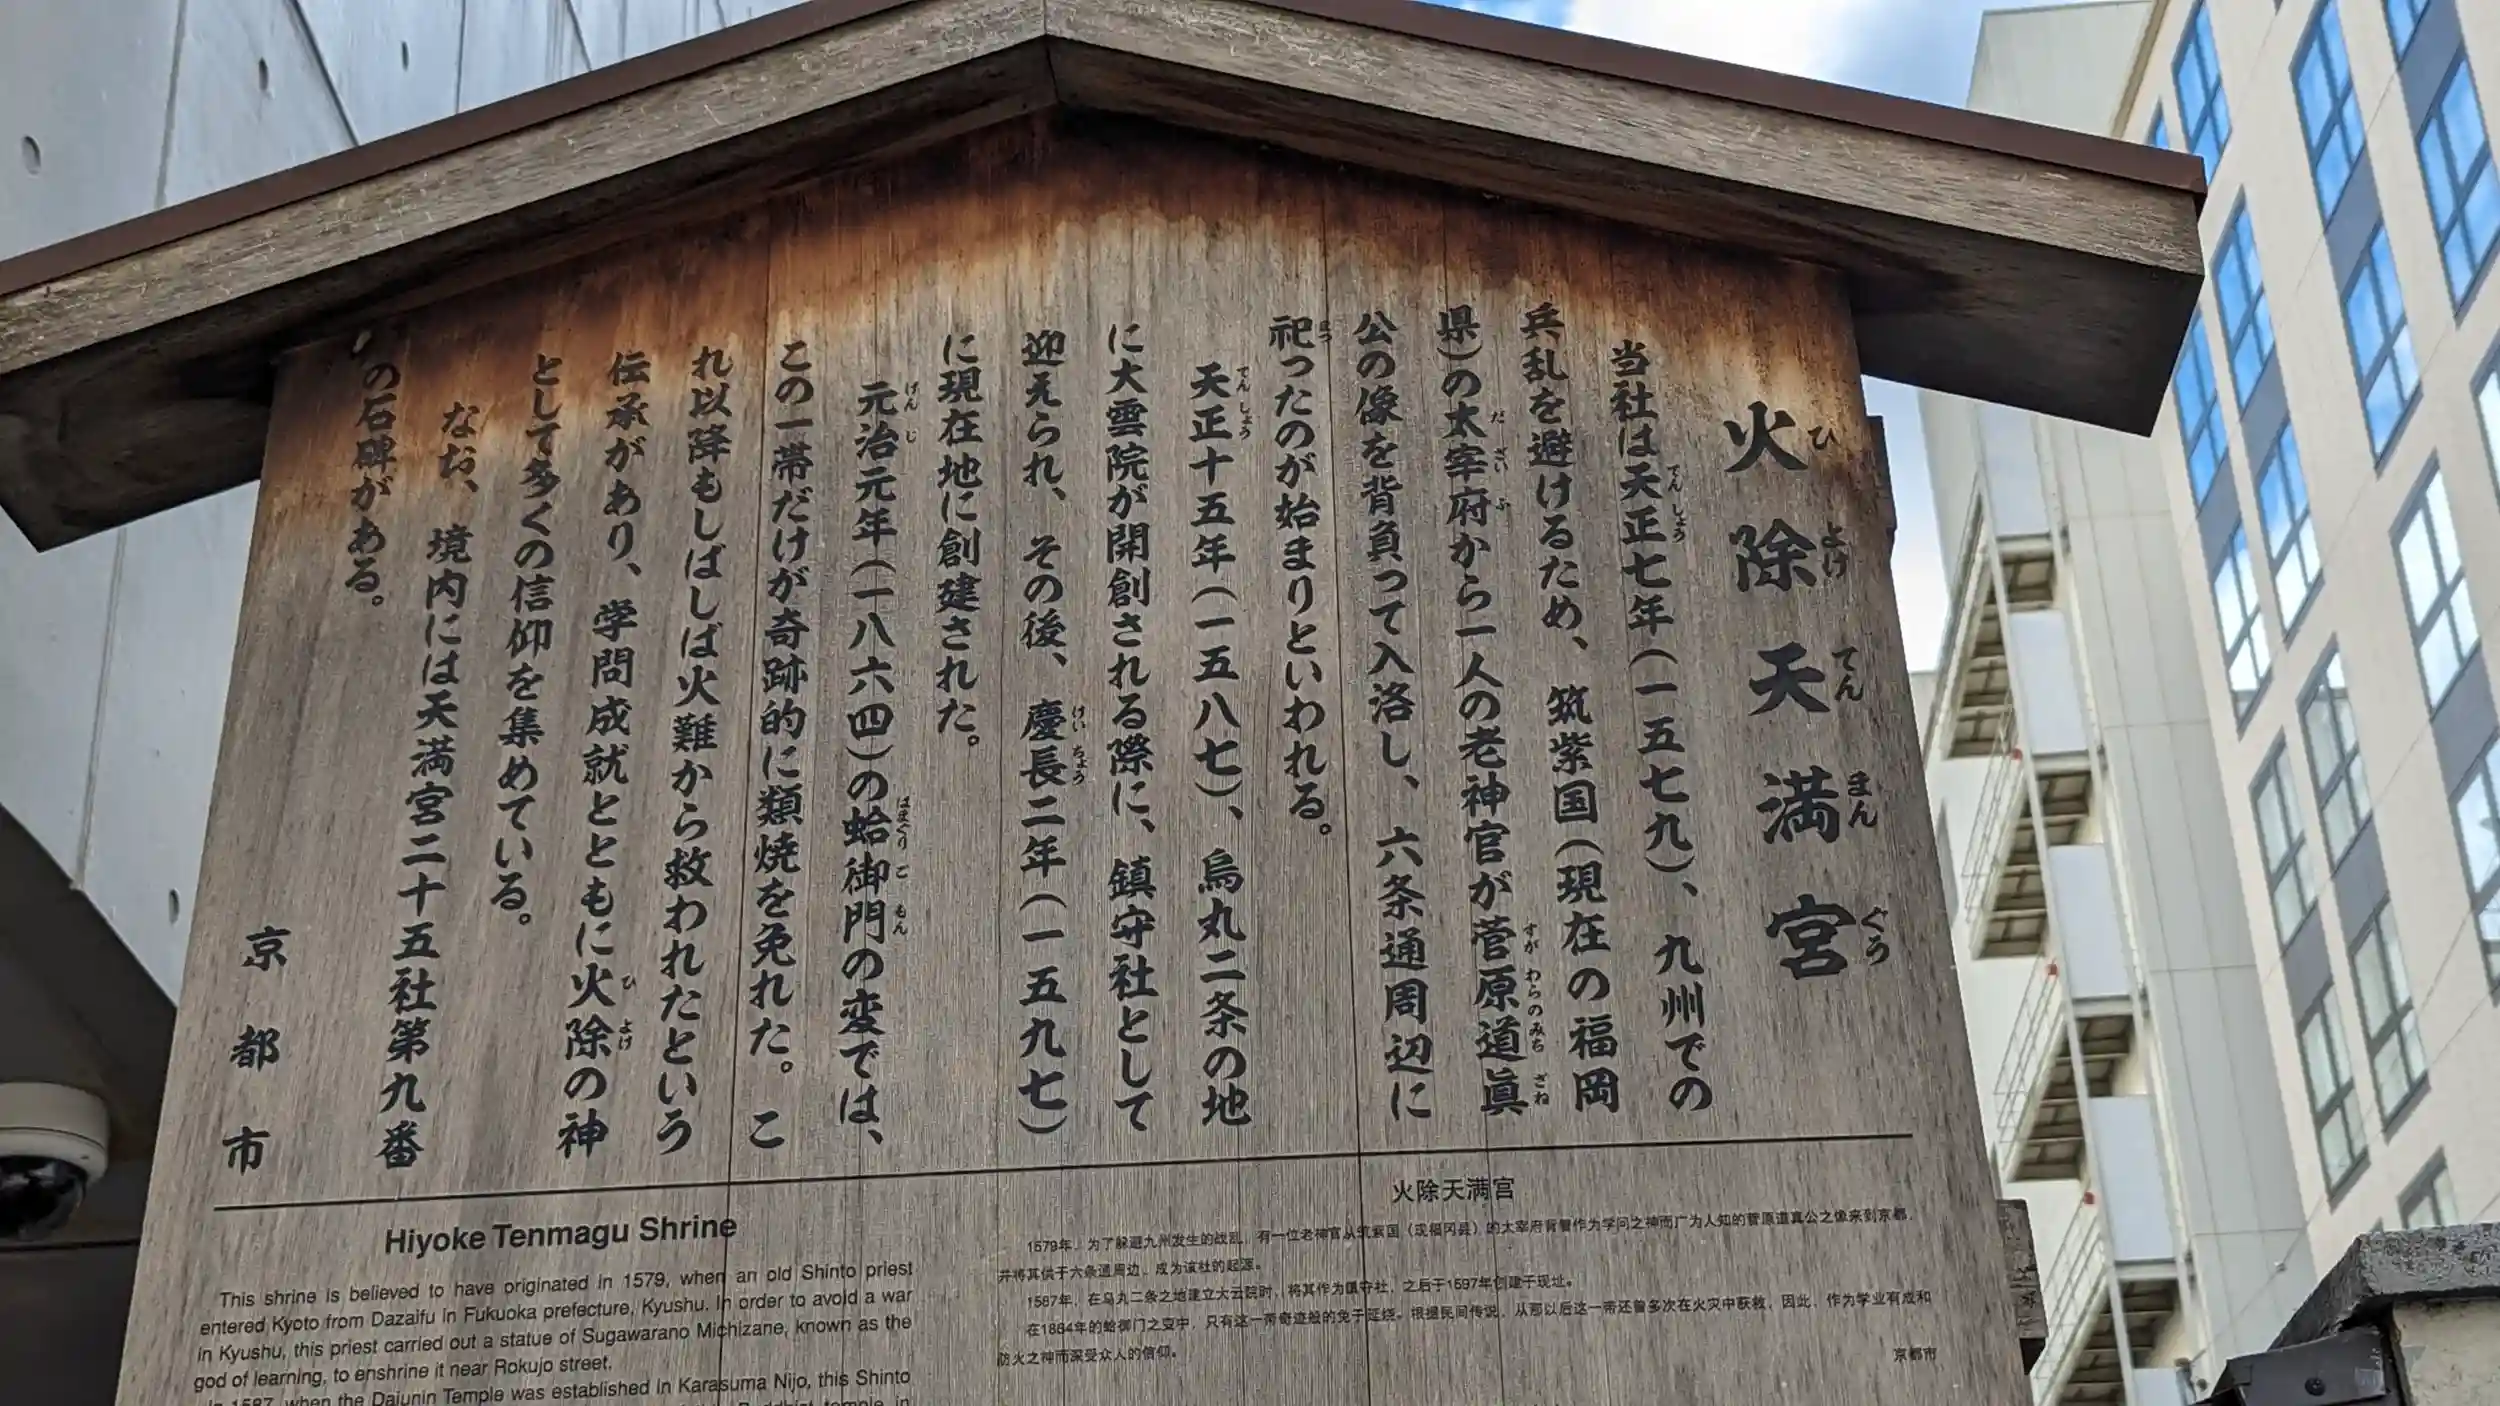 火除天満宮
ひ よけ てん まん ぐう
当社は天正七年(一五七九)、九州での
てんしょう
兵乱を避けるため、筑紫国(現在の福岡
県)の太宰府から一人の老神官が菅原道眞
だざいふ すがわらのみちざね
公の像を背負って入洛し、六条通周辺に
祀ったのが始まりといわれる。
まつ
天正十五年(一五八七)、烏丸二条の地
てんしょう
に大雲院が開創される際に、鎮守社として
迎えられ、その後、慶長二年(一五九七)
けいちょう
に現在地に創建された。
元治元年(一八六四)の蛤御門の変では、
げんじ はまぐりごもん
この一帯だけが奇跡的に類焼を免れた。こ
れ以降もしばしば火難から救われたという
伝承があり、学問成就とともに火除の神
ひ よけ
として多くの信仰を集めている。
なお、境内には天満宮二十五社第九番
の石碑がある。
京都市
Hiyoke Tenmagu Shrine
This shrine is believed to have originated in 1579, when an old Shinto priest
entered Kyoto from Dazaifu in Fukuoka prefecture, Kyushu. In order to avoid a war
in Kyushu, this priest carried out a statue of Sugawarano Michizane, known as the
god of learning, to enshrine it near Rokujo street.
In 1587, when the Daiunin Temple was established in Karasuma Nijo, this Shinto
火除天满宫
1579年，为了躲避九州发生的战乱，有一位老神官从筑紫国（现福冈县）的太宰府背着作为学问之神而广为人知的菅原道真公之像来到京都，
并将其供于六条通周边，成为该社的起源。
1587年，在乌丸二条之地建立大云院时，将其作为镇守社，之后于1597年创建于现址。
在1864年的蛤御门之变中，只有这一带奇迹般的免于延烧。根据民间传说，从那以后这一带还曾多次在火灾中获救，因此，作为学业有成和
防火之神而深受众人的信仰。
京都市